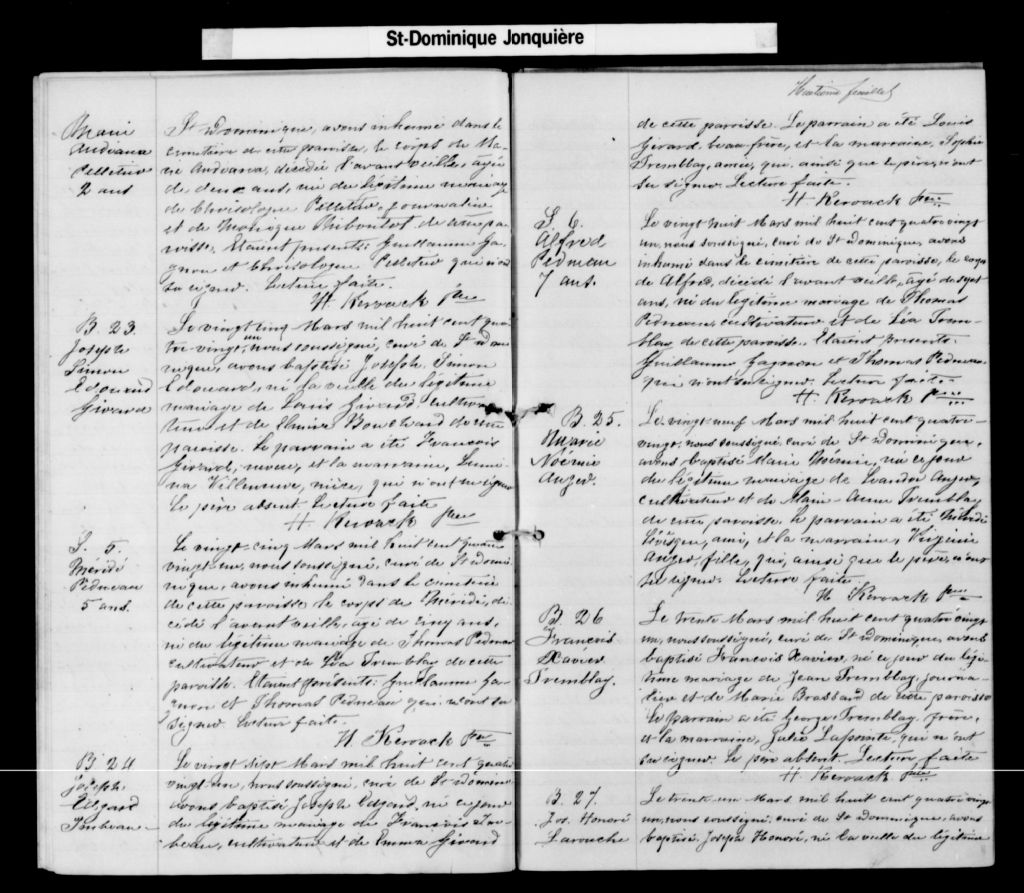 St-Dominique Jonquière
Marie
Andeana
Pelletier
2 ans
St Dominique, avons inhumé dans le
cimetière de cette paroisse, le corps de Ma-
rie Andeana, décédée l'avant veille, agée
de deux ans, née du légitime mariage
de Chrisologue Pelletier, journalier
et de Monique Thiboutot de cette pa-
roisse. Etaient présents: Guillaume Ga-
gnon et Chrisologue Pelletier qui n'ont
su signer. Lecture faite.
H Kerouack Ptre
B. 23.
Joseph
Simon
Edouard
Girard
Le vingt cinq Mars mil huit cent qua-
tre-vingt un, nous soussigné, curé de St Domi-
nique, avons baptisé Joseph Simon
Edouard, né la veille du légitime
mariage de Louis Girard, cultiva-
teur et de Elmire Bouchard de cette
paroisse. Le parrain a été François
Girard, neveu, et la marraine,
Villeneuve, nièce, qui n'ont su signer
Le père absent. Lecture faite
H Kerouack Ptre
S. 5.
Méridé
Pedneau
5 ans.
Le vingt-cinq Mars mil huit cent quatre
vingt-un, nous soussigné, curé de St Domi-
nique, avons inhumé dans le cimetière
de cette paroisse le corps de Méridé, dé-
cédé l'avant veille, agé de cinq ans,
né du légitime mariage de Thomas Pednau
cultivateur et de Léa Tremblay de cette
paroisse. Etaient présents: Guillaume Ga-
gnon et Thomas Pedneau qui n'ont su
signer Lecture faite.
H. Kerouack Ptre
B 24
Joseph
Edgard
Imbeau
Le vingt sept Mars mil huit cent quatre
vingt-un, nous soussigné, curé de St Dominique
avons baptisé Joseph Edgard, né ce jour
du légitime mariage de François Im-
beau, cultivateur et de Emma Girard
Huitième feuillet
de cette paroisse. Le parrain a été Louis
Girard, beau-frère, et la marraine, Sophie
Tremblay, amie, qui ainsi que le père, n'ont
su signer. Lecture faite.
H Kerouack Ptre
S. 6.
Alfred
Pedneau
7 ans.
Le vingt huit Mars mil huit cent quatre vingt
un, nous soussigné, curé de St Dominique, avons
inhumé dans le cimetière de cette paroisse, le corps
de Alfred, décédé l'avant veille, agé de sept
ans, né du légitime mariage de Thomas
Pedneau, cultivateur et de Léa Trem-
blay, de cette paroisse. Etaient présents:
Guillaume Gagnon et Thomas Pedneau,
qui n'ont su signer. Lecture faite.
H. Kerouack Ptre
B. 25.
Marie
Noémie
Auger.
Le vingt-neuf Mars mil huit cent quatre-
vingt, nous soussigné, curé de St Dominique,
avons baptisé Marie Noémie, née ce jour
du légitime mariage de Léandre Auger,
cultivateur et de Marie-Anne Tremblay,
de cette paroisse. Le parrain a été Méridé
Lévêsque, ami, et la marraine, Virginie
Auger, fille, qui, ainsi que le père, n'ont
su signer. Lecture faite
H Kerouack Ptre
B. 26
François
Xavier
Tremblay.
Le trente Mars mil huit cent quatre vingt
un, nous soussigné, curé de St Dominique, avons
baptisé François Xavier, né ce jour du légi-
time mariage de Jean Tremblay, journa-
lier et de Marie Brassard de cette paroisse
Le parrain a été George Tremblay, frère,
et la marraine, Julie Lapointe, qui n'ont
su signer. Le père absent. Lecture faite
H. Kerouack Ptre
B. 27.
Jos. Honoré
Larouche
Le trente un Mars mil huit cent quatre vingt
un, nous soussigné, curé de St Dominique, avons
baptisé Joseph Honoré, né la veille du légitime